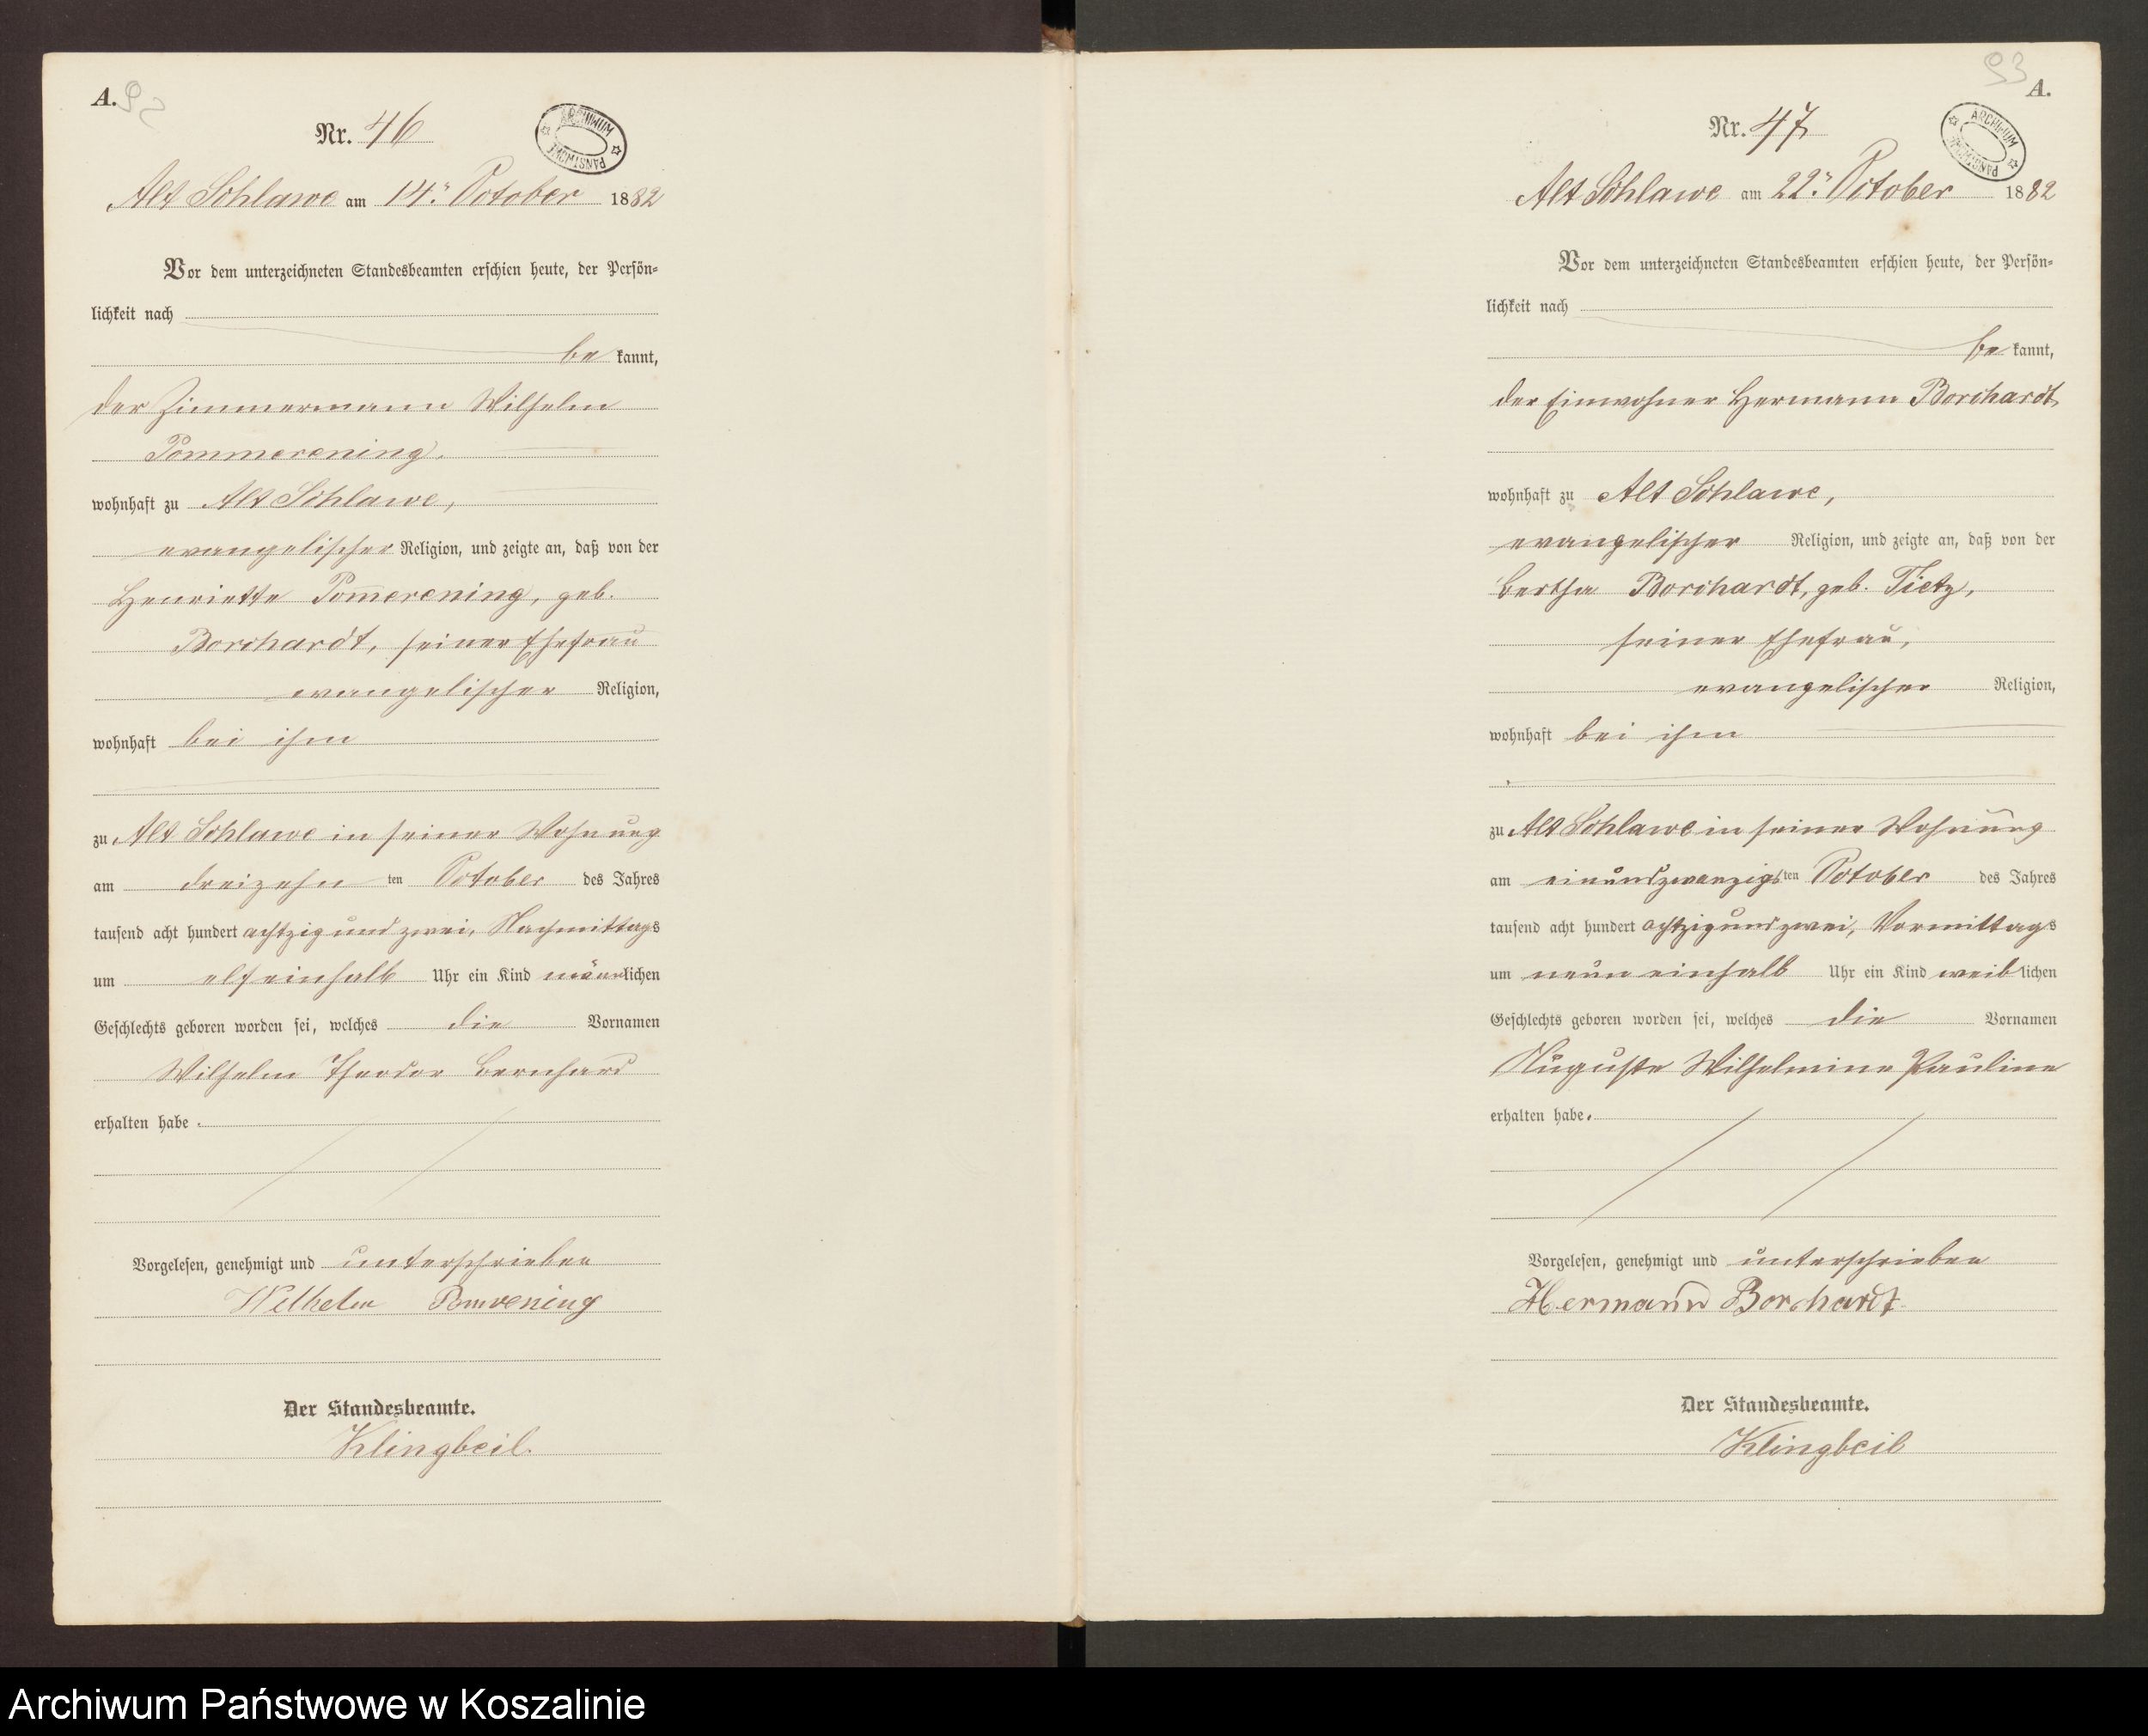 A.
92
Nr. 46
ARCHIWUM PAŃSTWOWE
Alt Schlawe am 14. October 1882
Vor dem unterzeichneten Standesbeamten erschien heute, der Persön=
lichkeit nach
be kannt,
der Zimmermann Wilhelm
Pommerening,
wohnhaft zu Alt Schlawe,
evangelischer Religion, und zeigte an, daß von der
Henriette Pom̅erening, geb.
Borchardt, seiner Ehefrau
evangelischer Religion,
wohnhaft bei ihm
zu Alt Schlawe in seiner Wohnung
am dreizehn ten October des Jahres
tausend acht hundert achtzig und zwei, Nachmittags
um elf einhalb Uhr ein Kind männlichen
Geschlechts geboren worden sei, welches die Vornamen
Wilhelm Theodor Bernhard
erhalten habe.
Vorgelesen, genehmigt und unterschrieben
Wilhelm Pomrening
Der Standesbeamte.
Klingbeil.
93
A.
Nr. 47
ARCHIWUM PAŃSTWOWE
Alt Schlawe am 22. October 1882
Vor dem unterzeichneten Standesbeamten erschien heute, der Persön=
lichkeit nach
be kannt,
der Einwohner Hermann Borchardt
wohnhaft zu Alt Schlawe,
evangelischer Religion, und zeigte an, daß von der
Bertha Borchardt, geb. Tietz,
seiner Ehefrau,
evangelischer Religion,
wohnhaft bei ihm
zu Alt Schlawe in seiner Wohnung
am einundzwanzigsten October des Jahres
tausend acht hundert achtzig und zwei, Vormittags
um neun einhalb Uhr ein Kind weiblichen
Geschlechts geboren worden sei, welches die Vornamen
Auguste Wilhelmine Pauline
erhalten habe.
Vorgelesen, genehmigt und unterschrieben
Hermann Borchardt
Der Standesbeamte.
Klingbeil
Archiwum Państwowe w Koszalinie